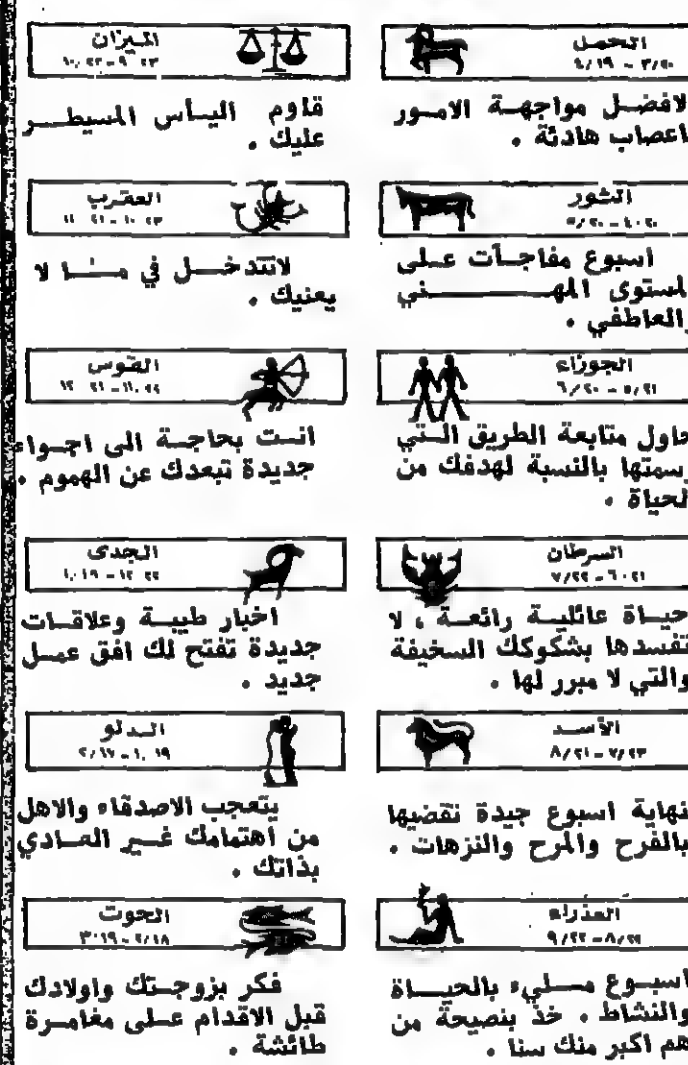 الحمل
٣/٢٠ - ٤/١٩
لافضل مواجهة الامور
اعصاب هادئة .
الثور
٤٠٢٠ - ٥/٢٠
اسبوع مفاجآت على
لمستوى المهني
العاطفي .
الجوزاء
٥/٢١ - ٦/٢٠
حاول متابعة الطريق التي
رسمتها بالنسبة لهدفك من
لحياة .
السرطان
٦٠٢١ - ٧/٢٢
حياة عائلية رائعة ، لا
تفسدها بشكوكك السخيفة
والتي لا مبرر لها .
الأسد
٧/٢٣ - ٨/٢١
نهاية اسبوع جيدة نقضيها
بالفرح والمرح والنزهات .
العذراء
٨/٢٢ - ٩/٢٢
اسبوع مليء بالحياة
والنشاط . خذ بنصيحة من
هم اكبر منك سنا .
الميزان
٢٣ ٩ - ٢٣ ١٠
قاوم اليأس المسيطر
عليك .
العقرب
٢٣ ١٠ - ٢١ ١١
لاتتدخل في ما لا
يعنيك .
القوس
٢٢ ١١ - ٢١ ١٢
انت بحاجة الى اجواء
جديدة تبعدك عن الهموم .
الجدي
٢٢ ١٢ - ١٩ ١
اخبار طيبة وعلاقات
جديدة تفتح لك افق عمل
جديد .
الدلو
١٩ ١ - ٢/١٧
يتعجب الاصدقاء والاهل
من اهتمامك غير العادي
بذاتك .
الحوت
٢/١٨ - ٣٠١٩
فكر بزوجتك واولادك
قبل الاقدام على مغامرة
طائشة .